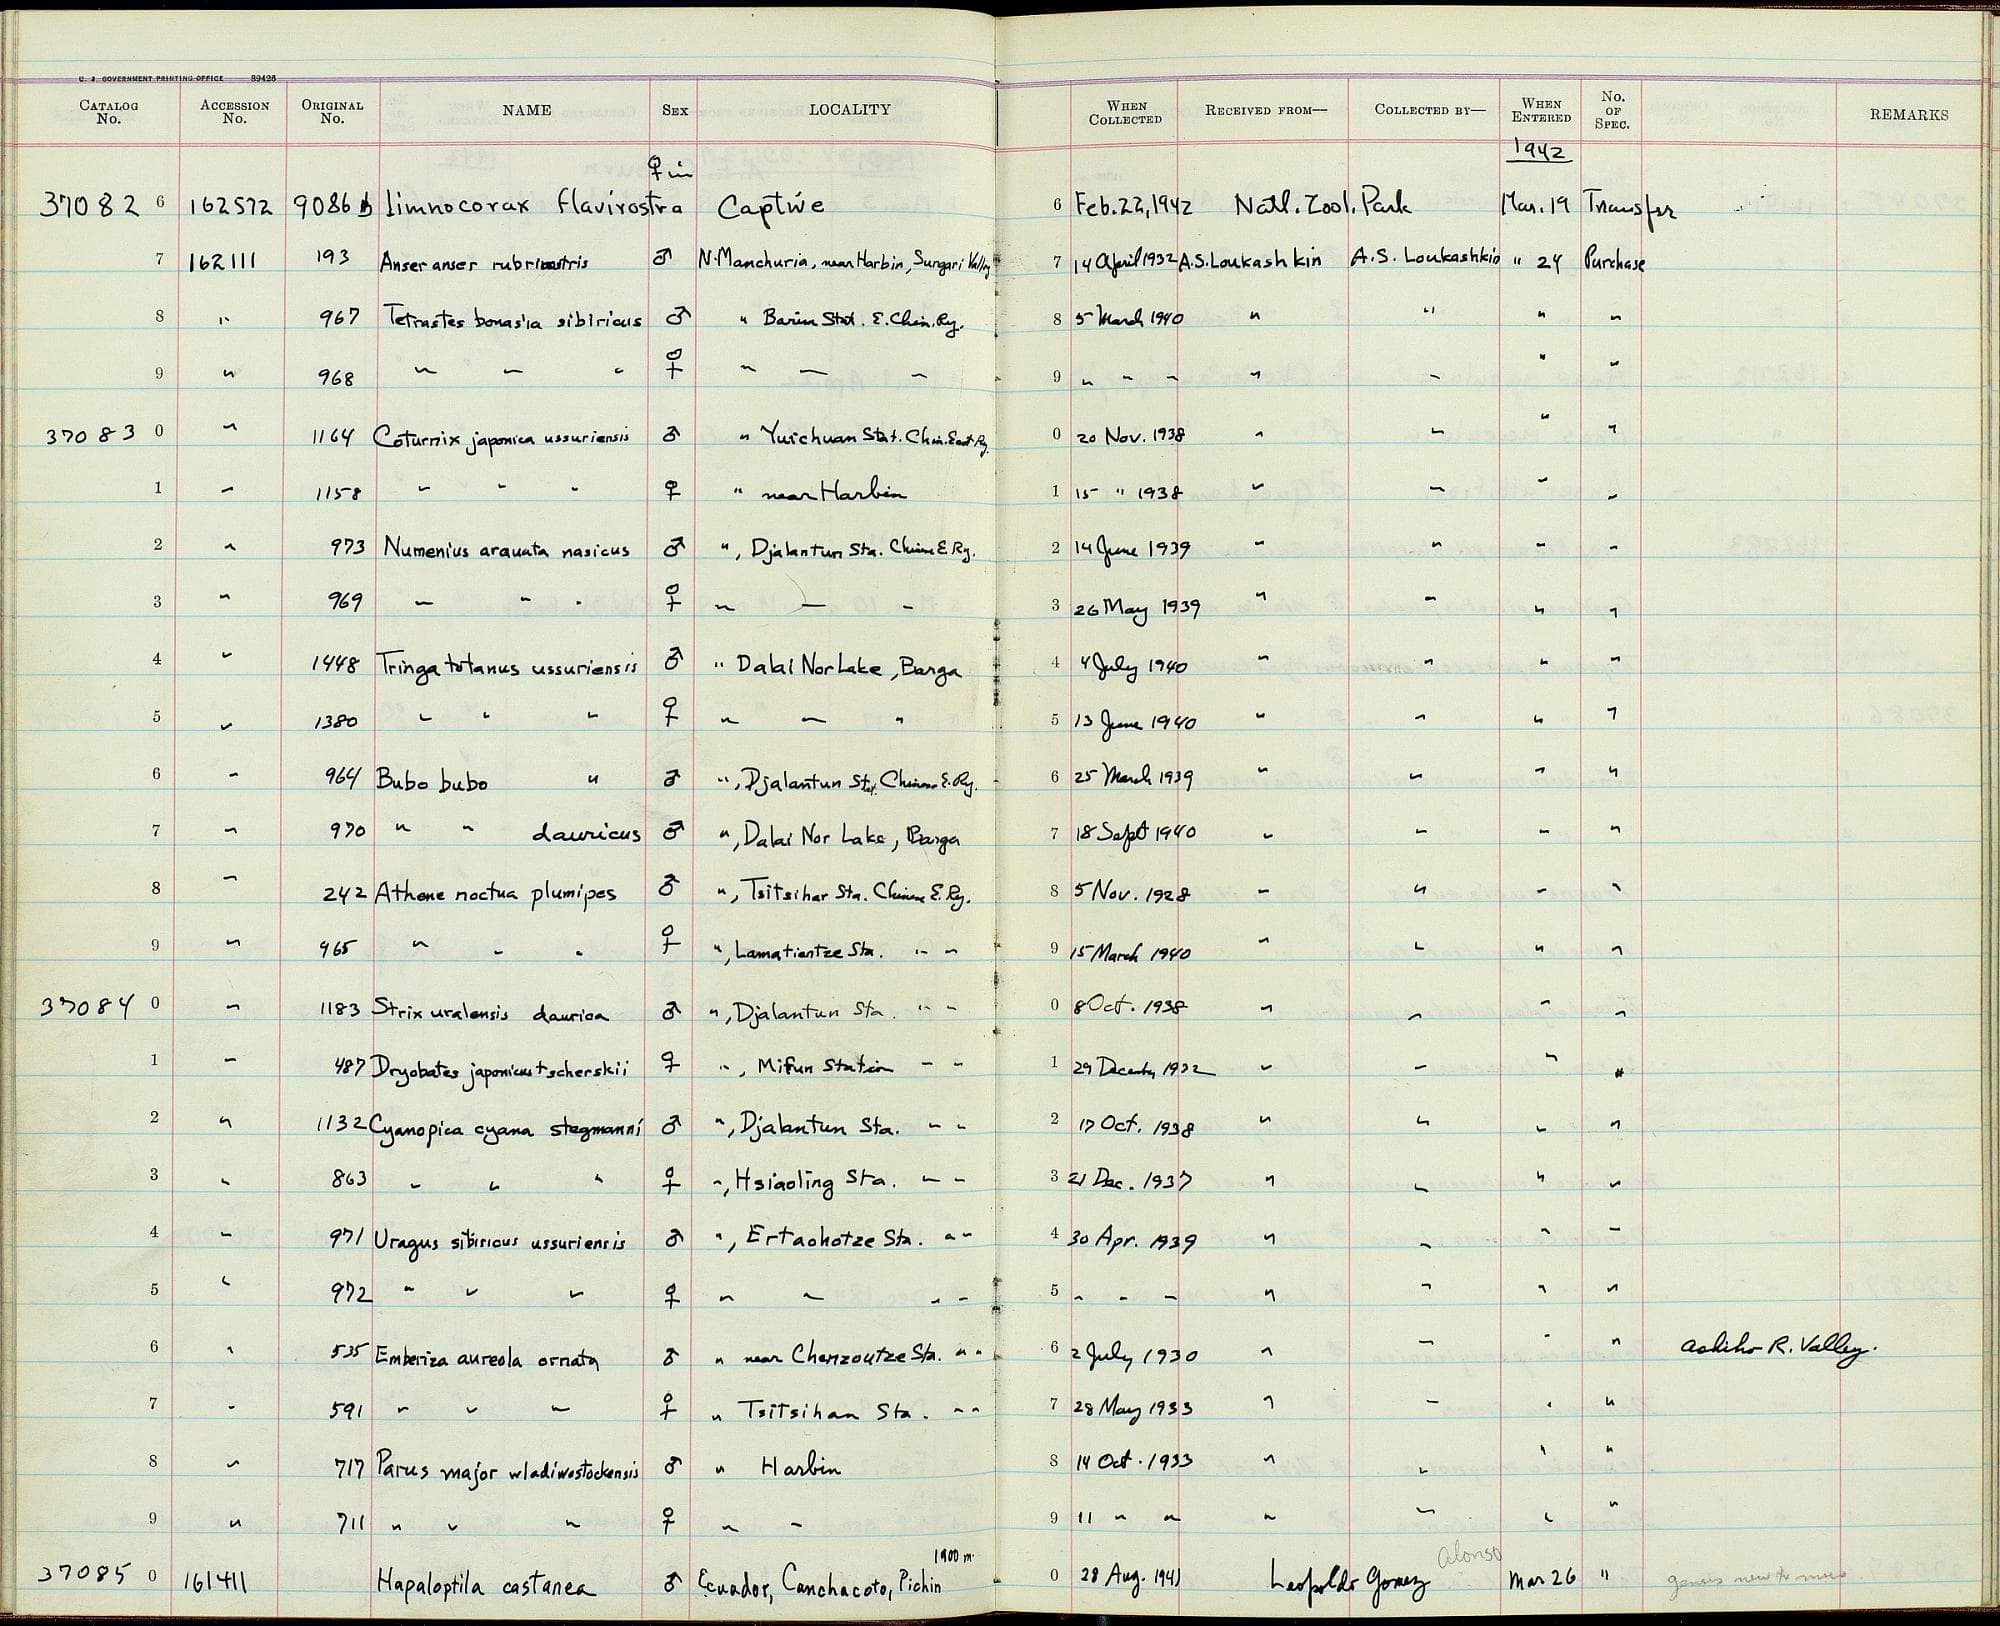 U. S. GOVERNMENT PRINTING OFFICE 39426
CATALOG No. ACCESSION No. ORIGINAL No. NAME SEX LOCALITY WHEN COLLECTED RECEIVED FROM— COLLECTED BY— WHEN ENTERED No. OF SPEC. REMARKS
1942
♀ im
37082 6 162572 9086 Limnocorax flavirostra Captive 6 Feb. 22, 1942 Natl. Zool. Park Mar. 19 Transfer
7 162111 193 Anser anser rubrirostris ♂ N. Manchuria, near Harbin, Sungari Valley 7 14 April 1932 A.S. Loukashkin A.S. Loukashkin " 24 Purchase
8 " 967 Tetrastes bonasia sibiricus ♂ " Barim Stat. E. Chin. Ry. 8 5 March 1940 " " " "
9 " 968 " " " ♀ " " " 9 " " " " " " "
37083 0 " 1164 Coturnix japonica ussuriensis ♂ " Yuichuan Stat. Chin. East Ry. 0 20 Nov. 1938 " " " "
1 " 1158 " " " ♀ " near Harbin 1 15 " 1938 " " " "
2 " 973 Numenius arquata nasicus ♂ ", Djalantun Sta. Chinese E. Ry. 2 14 June 1939 " " " "
3 " 969 " " " ♀ " " " 3 26 May 1939 " " " "
4 " 1448 Tringa totanus ussuriensis ♂ " Dalai Nor Lake, Barga 4 4 July 1940 " " " "
5 " 1380 " " " ♀ " " " 5 13 June 1940 " " " "
6 " 964 Bubo bubo " ♂ ", Djalantun Sta. Chinese E. Ry. 6 25 March 1939 " " " "
7 " 970 " " dauricus ♂ ", Dalai Nor Lake, Barga 7 18 Sept 1940 " " " "
8 " 242 Athene noctua plumipes ♂ ", Tsitsihar Sta. Chinese E. Ry. 8 5 Nov. 1928 " " " "
9 " 965 " " " ♀ ", Lamatientze Sta. " " 9 15 March 1940 " " " "
37084 0 " 1183 Strix uralensis daurica ♂ ", Djalantun Sta. " " 0 8 Oct. 1938 " " " "
1 " 487 Dryobates japonicus tscherskii ♀ ", Mifun Station " " 1 29 December 1932 " " " "
2 " 1132 Cyanopica cyana stegmanni ♂ ", Djalantun Sta. " " 2 17 Oct. 1938 " " " "
3 " 863 " " " ♀ ", Hsiaoling Sta. " " 3 21 Dec. 1937 " " " "
4 " 971 Uragus sibiricus ussuriensis ♂ ", Ertaohotze Sta. " " 4 30 Apr. 1939 " " " "
5 " 972 " " " ♀ " " " " 5 " " " " " " "
6 " 535 Emberiza aureola ornata ♂ " near Chenzoutze Sta. " " 6 2 July 1930 " " " " Ashiho R. Valley.
7 " 591 " " " ♀ " Tsitsihan Sta. " " 7 28 May 1933 " " " "
8 " 717 Parus major wladiwostockensis ♂ " Harbin 8 14 Oct. 1933 " " " "
9 " 711 " " " ♀ " " 9 11 " " " " " "
1900 m. Alonso
37085 0 161411 Hapaloptila castanea ♂ Ecuador, Canchacoto, Pichin 0 28 Aug. 1941 Leopoldo Gomez Mar 26 " genus new to mus.